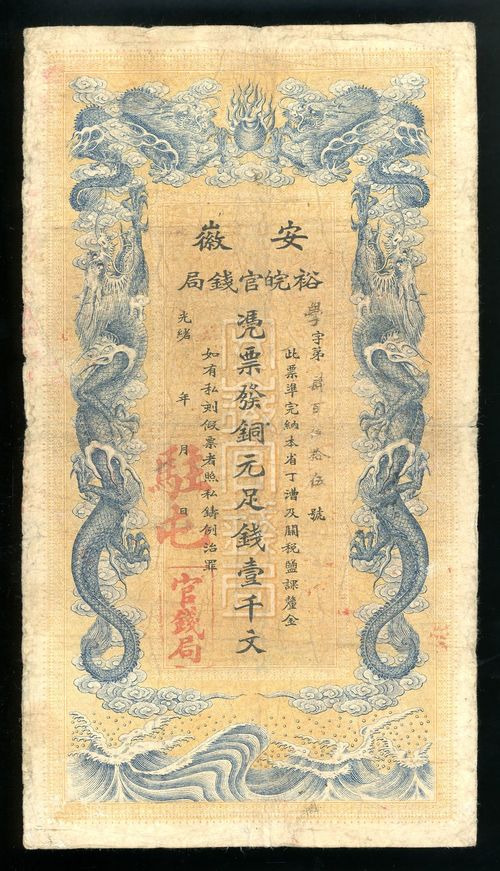 安徽
裕皖官錢局
學字第肆百 拾伍號
此票準完納本省丁漕及關稅鹽課釐金
憑票發銅元足錢壹千文
如有私刻假票者照私鑄例治罪
光緒 年 月 日
駐屯
官錢局